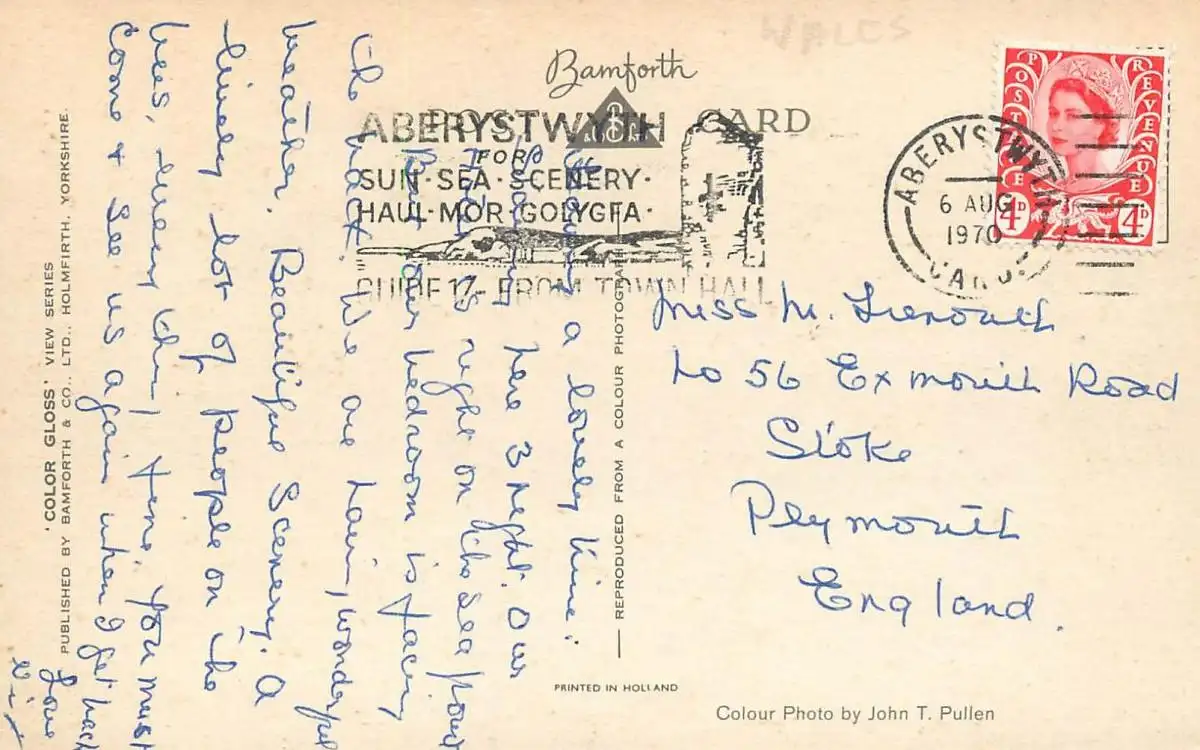 WALES
Bamforth
POST CARD
ABERYSTWYTH
FOR
SUN·SEA·SCENERY·
HAUL·MOR·GOLYGFA·
GUIDE 17- FROM TOWN HALL
ABERYSTWYTH
6 AUG
1970
CARD.
POSTAGE
REVENUE
4D
4D
a lovely time.
here 3 night. Our
is right on the sea
But our bedroom is facing
the back. We are having wonderful
weather. Beautiful Scenery. A
lovely lot of people on the
every thing fine. You must
come & see us again when I get back
Love
Miss M.
to 56 Exmouth Road
Stoke
Plymouth
England.
'COLOR GLOSS' VIEW SERIES
PUBLISHED BY BAMFORTH & CO., LTD., HOLMFIRTH, YORKSHIRE.
REPRODUCED FROM A COLOUR PHOTOGRAPH
PRINTED IN HOLLAND
Colour Photo by John T. Pullen